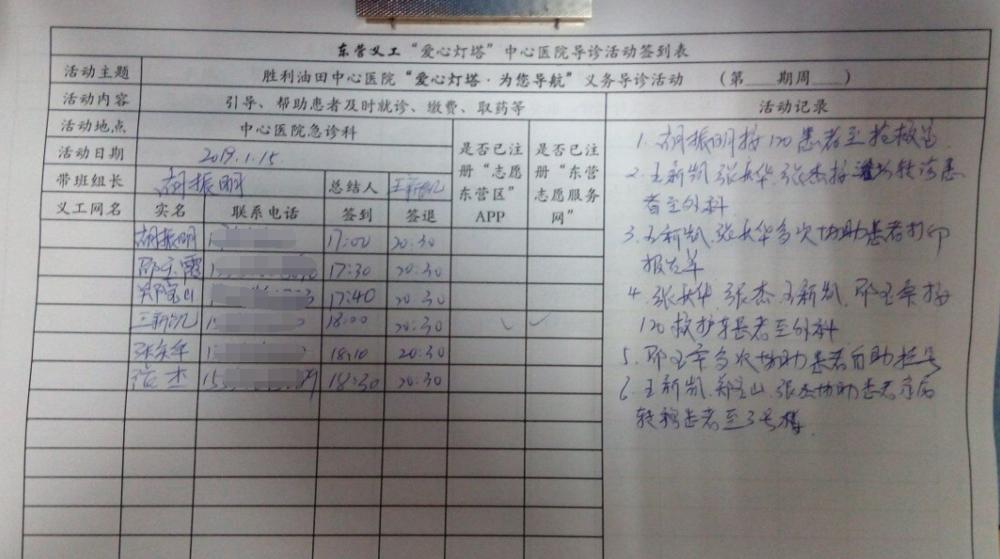 东营义工“爱心灯塔”中心医院导诊活动签到表
活动主题 胜利油田中心医院“爱心灯塔·为您导航”义务导诊活动 (第___期周___)
活动内容 引导、帮助患者及时就诊、缴费、取药等 活动记录
活动地点 中心医院急诊科
活动日期 2019.1.15.
是否已注册“志愿东营区”APP
是否已注册“东营志愿服务网”
带班组长 胡振明 总结人 王新凯
义工网名 实名 联系电话 签到 签退
胡振明 17:00 20:30
17:30 20:30
17:40 20:30
王新凯 18:00 20:30 ✓ ✓
18:10 20:30
张杰 18:30 20:30
1. 胡振明接120患者至抢救室
2. 王新凯 张长华. 张杰 转诊患
者至外科
3. 王新凯. 张长华多次协助患者打印
报告单
4. 张长华 张杰. 王新凯. 接
120救护车患者至外科
5. 多次协助患者自助挂号
6. 王新凯. 郑宝山. 张杰协助患者
转移患者至3号楼.